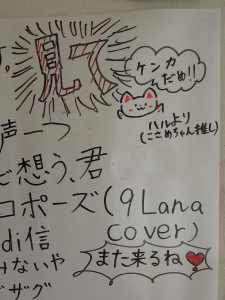 す。
見て
ケンカ
だめ!!
ハルより
(ここめちゃん推し)
声一つ
ご想う、君
コポーズ(9Lana
cover)
di信
みないや
また来るね❤
ザグ